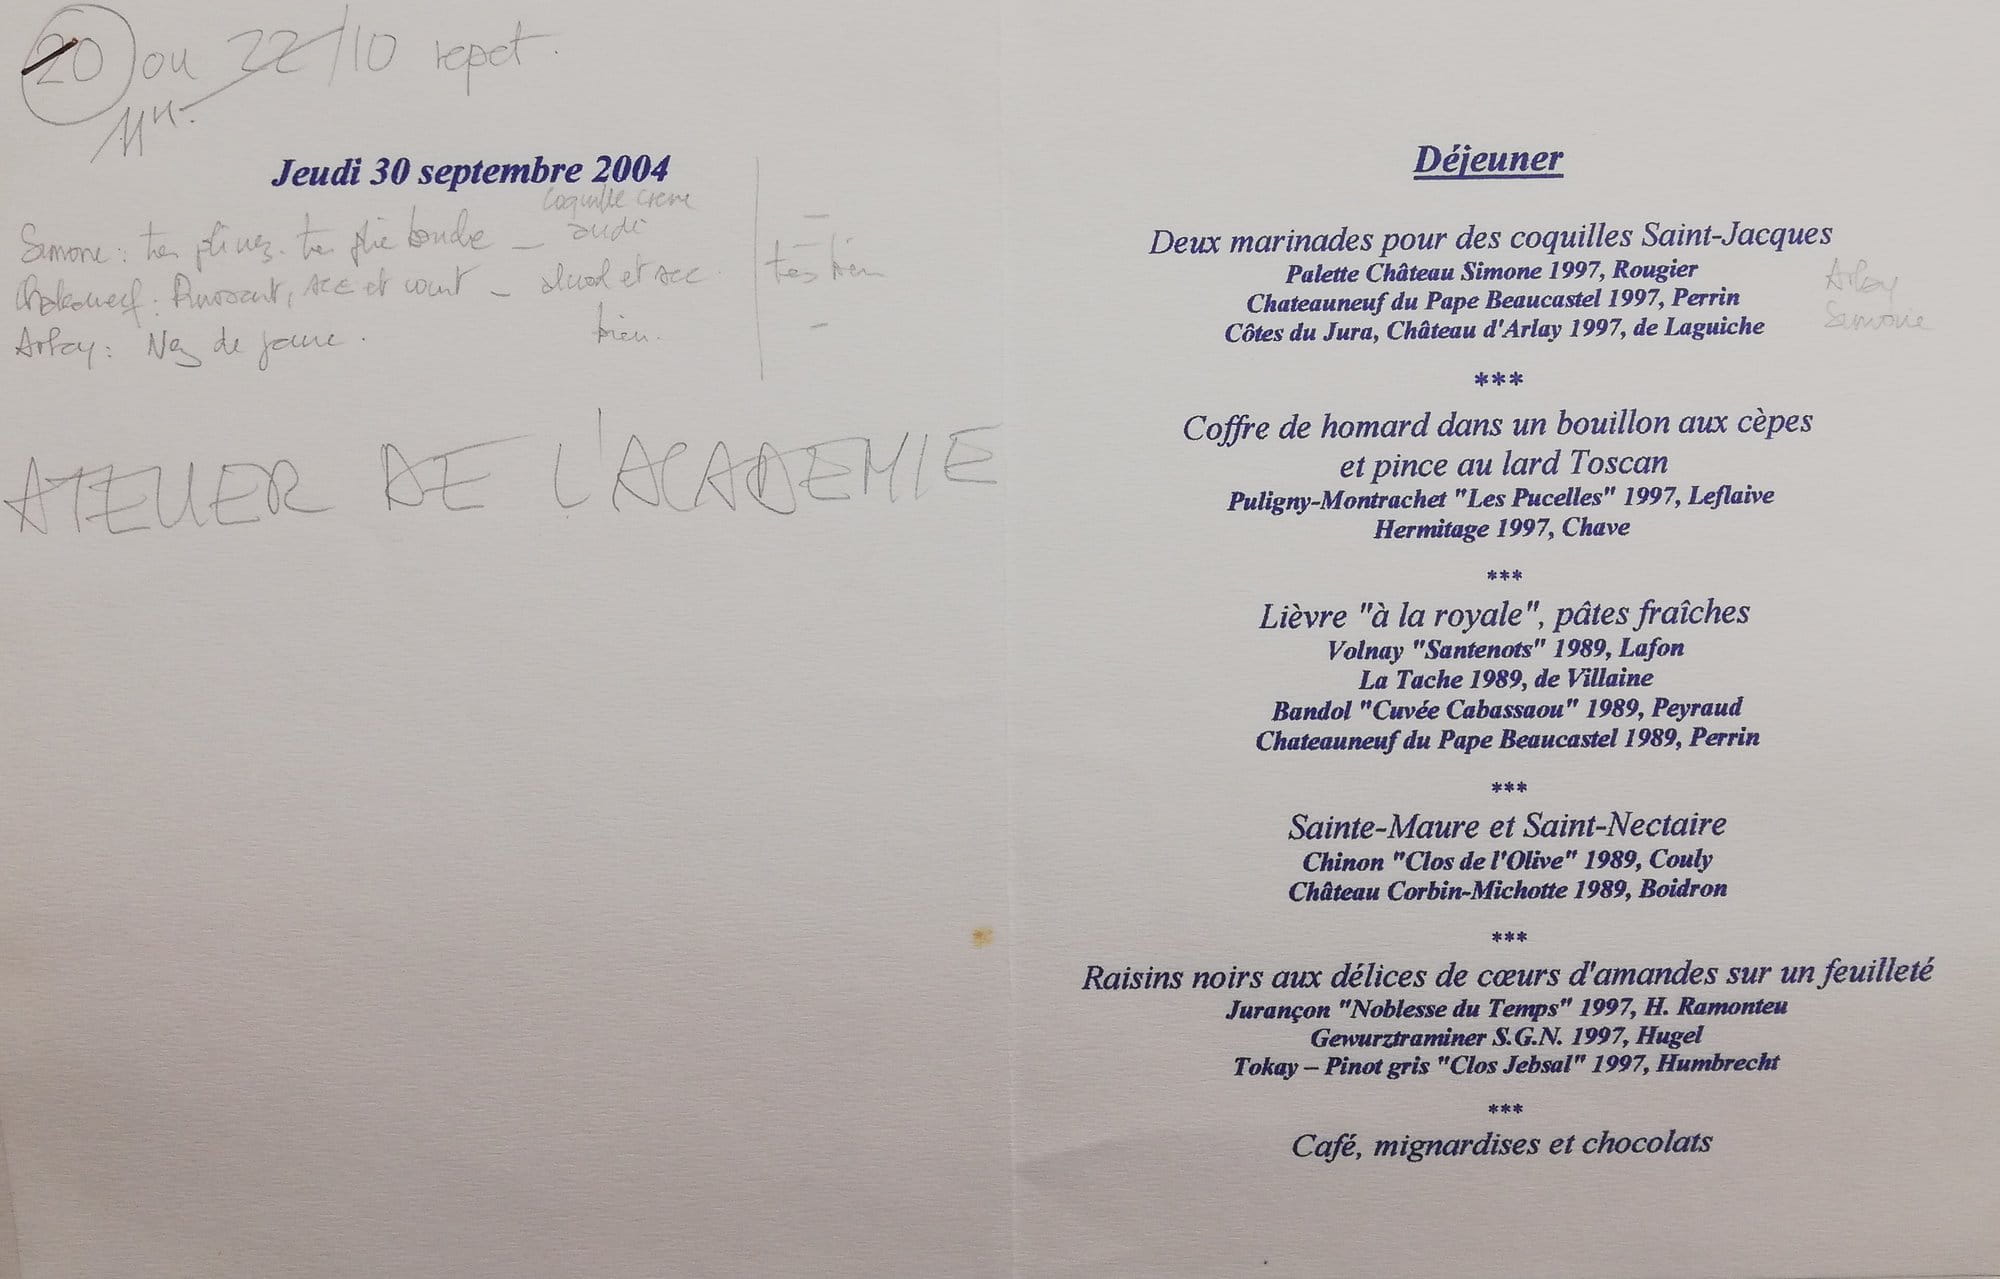 20 ou 22/10 repet.
11H.
Jeudi 30 septembre 2004
coquille creme
Simone : tres tres bouche –
tres bien
et sec et court – alcool et sec
Arlay : Nez de jaune.
bien.
ATELIER DE L'ACADEMIE
Déjeuner
Deux marinades pour des coquilles Saint-Jacques
Palette Château Simone 1997, Rougier
Chateauneuf du Pape Beaucastel 1997, Perrin
Côtes du Jura, Château d'Arlay 1997, de Laguiche
Arlay
Simone
***
Coffre de homard dans un bouillon aux cèpes
et pince au lard Toscan
Puligny-Montrachet "Les Pucelles" 1997, Leflaive
Hermitage 1997, Chave
***
Lièvre "à la royale", pâtes fraîches
Volnay "Santenots" 1989, Lafon
La Tache 1989, de Villaine
Bandol "Cuvée Cabassaou" 1989, Peyraud
Chateauneuf du Pape Beaucastel 1989, Perrin
***
Sainte-Maure et Saint-Nectaire
Chinon "Clos de l'Olive" 1989, Couly
Château Corbin-Michotte 1989, Boidron
***
Raisins noirs aux délices de cœurs d'amandes sur un feuilleté
Jurançon "Noblesse du Temps" 1997, H. Ramonteu
Gewurztraminer S.G.N. 1997, Hugel
Tokay – Pinot gris "Clos Jebsal" 1997, Humbrecht
***
Café, mignardises et chocolats